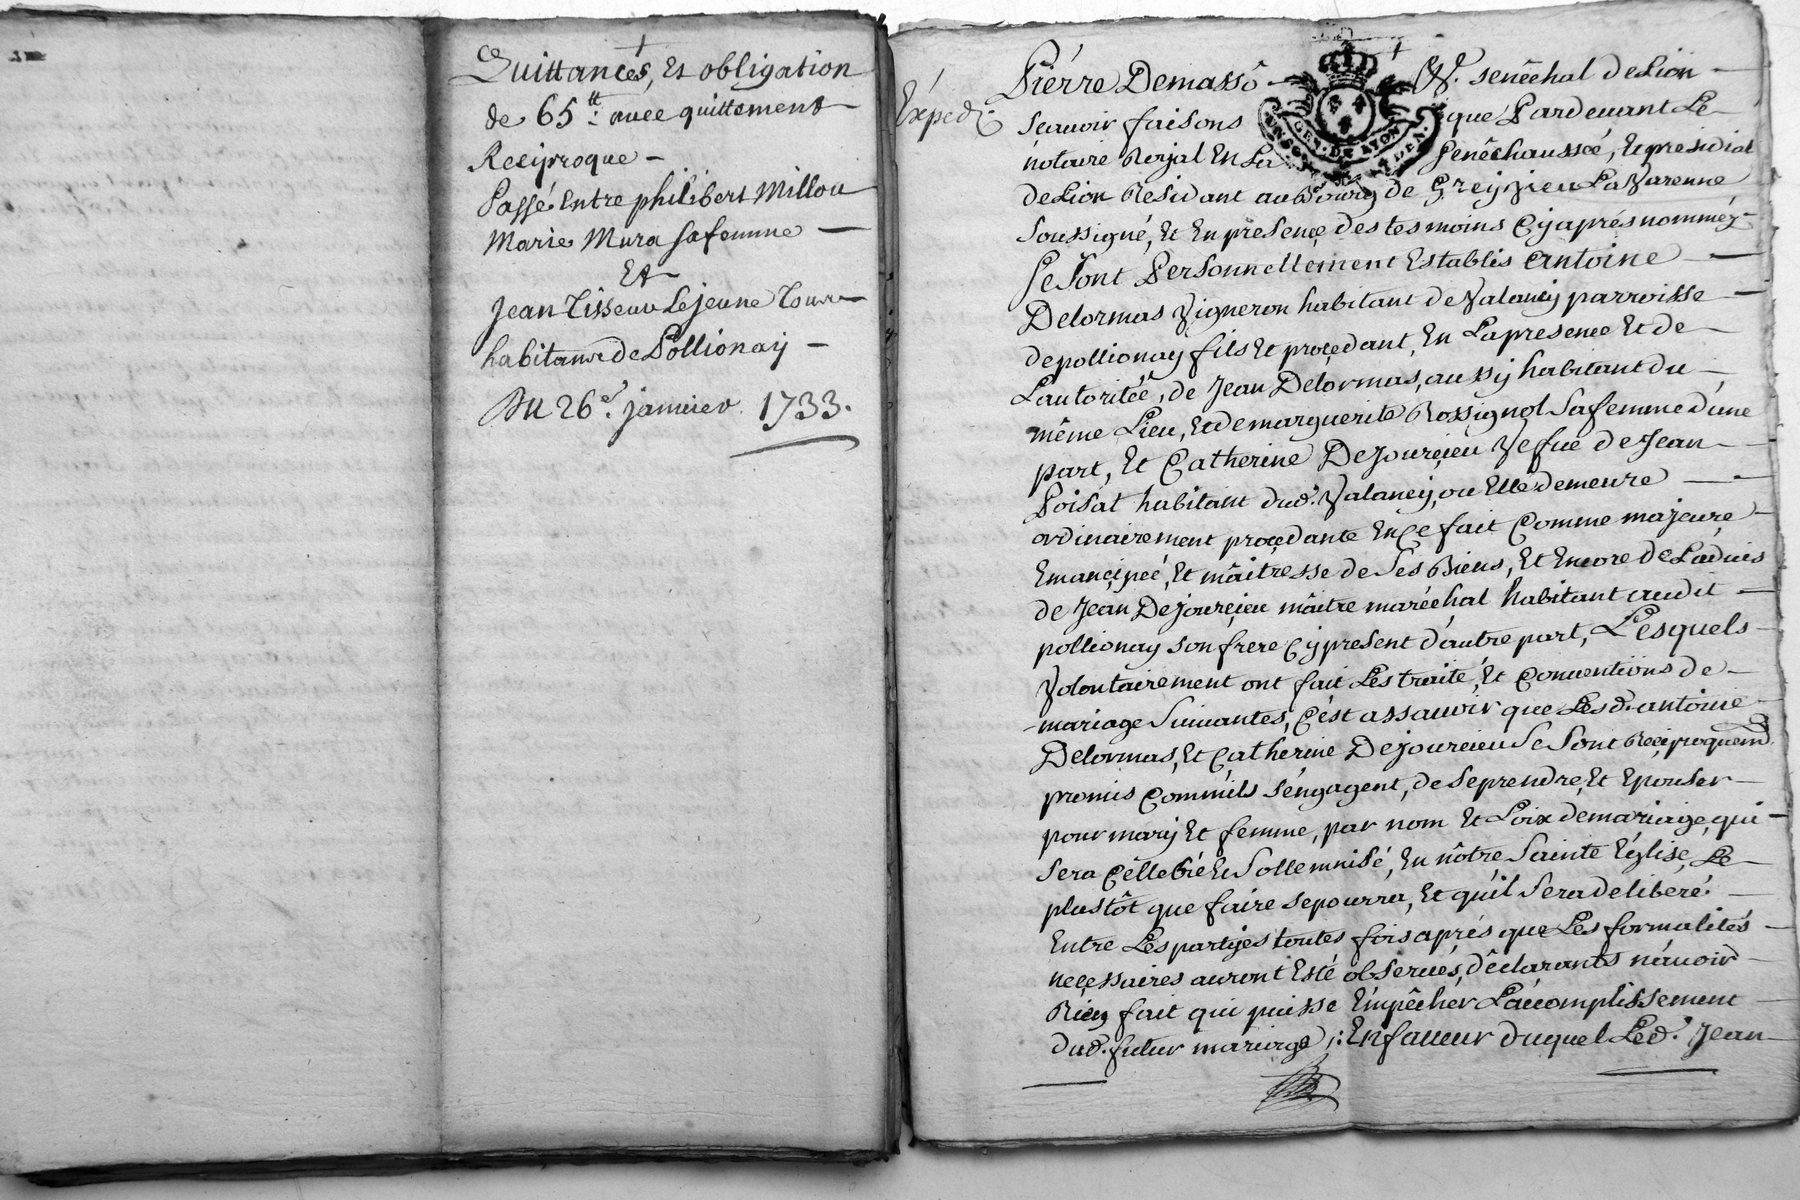 Quittances, Et obligation
de 65tt: avec quittement
Reciproque –
Passé Entre philibert Millou
Marie Mura sa femme –
Et
Jean Tisseur Le jeune Tous
habitans de Pollionay –
Du 26e. janvier 1733.
Expedi.
Pierre Demasso – Sr. senêchal de Lion –
Scavoir faisons que Pardevant Le
notaire Royal En La senêchaussée, Et presidial
de Lion Residant au Bourg de Greizieu La Varenne
soussigné, Et En presence des tesmoins Cy aprés nomméz –
se sont Personnellement Establis Antoine –
Delormas Vigneron habitant de Valancy parroisse –
de pollionay fils Et procedant, En La presence Et de –
L'autoritéé, de Jean Delormas, aussy habitant du –
même Lieu, Et de marguerite Rossignol Sa femme d'une
part, Et Catherine Dejourcieu Vefue de Jean –
Poisat habitant dud. Valancy, ou Elle demeure –
ordinairement procedante En Ce fait Comme majeure –
Emancipeé, Et mâitresse de Ses Biens, Et Encore de L'aduis
de Jean Dejourcieu mâitre maréchal habitant audit –
pollionay son frere Cy present d'autre part, Lesquels –
Volontairement ont fait Les traité, Et Conuentions de –
mariage Suiuantes, C'est assauoir que Lesd. antoine –
Delormas, Et Catherine Dejourcieu Se Sont Reciproquemt.
promis Comm'ils s'engagent, de Se prendre, Et Epouser –
pour mary Et femme, par nom Et Loix de mariage, qui –
Sera Céllebré Et Sollemnisé, En nôtre Sainte Église, Le –
plustôt que faire se pourra, Et qu'il Sera deliberé. –
Entre Les partyes toutes fois aprés que Les formalités –
necessaires auront Esté obseruées, dêclarants n'auoir –
Rien fait qui puisse Empêcher L'accomplissement –
dud. futur mariage ;: En faueur duquel Led. Jean –